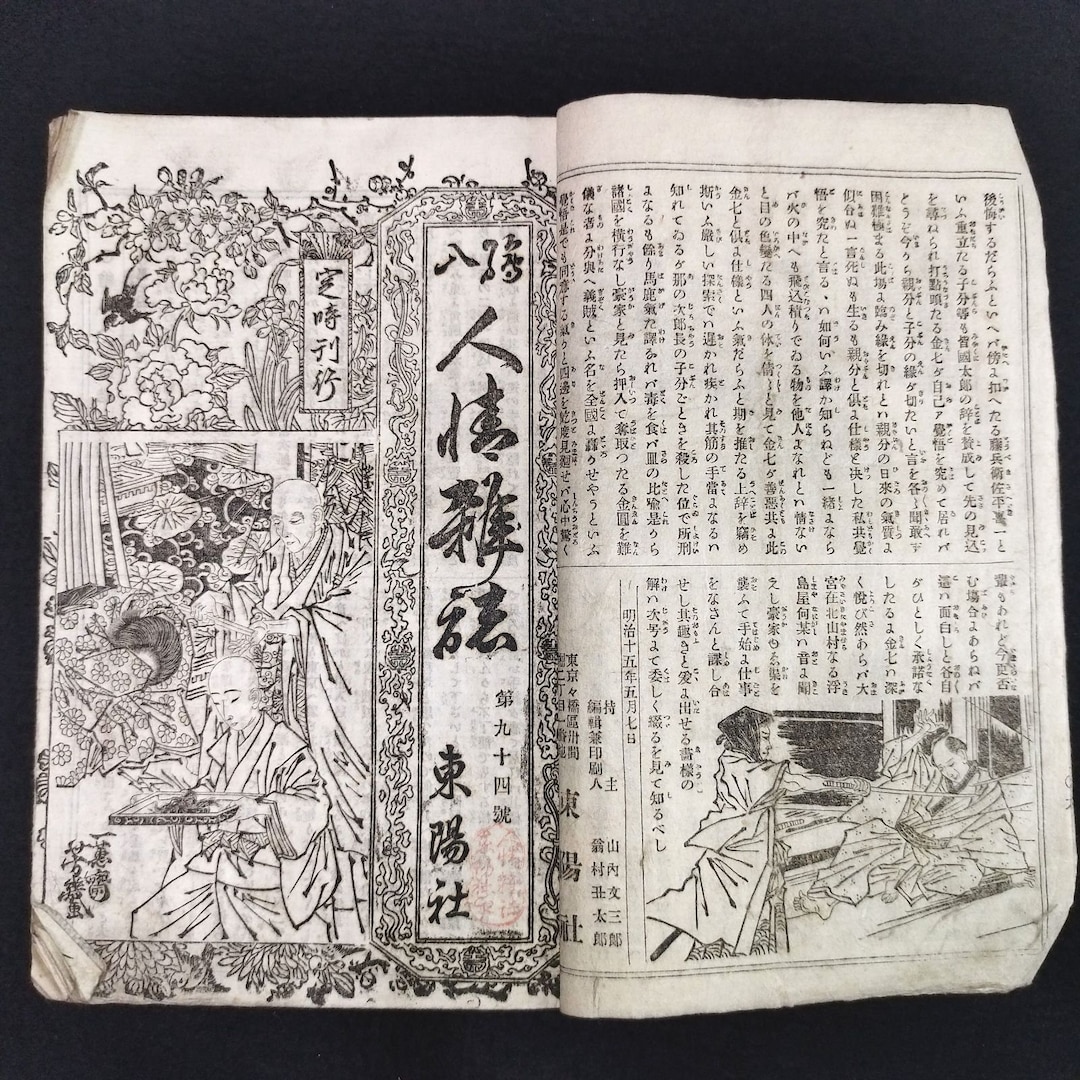 後悔するだらふといへバ傍よ扣へたる藤兵衛佐平鳶一と
いふ重立たる子分等も皆國太郎の辞を賛成して先の見込
を尋ねられ打點頭たる金七ゲ自己ア覺悟を究めて居れバ
とうぞ今から親分と子分の緣ゲ切たいと言を各々聞敢ず
困難極まる此場よ臨み緣を切れとハ親分の日来の氣質よ
似合ぬ一言死ぬも生るも親分と俱よ仕様と决した私共覺
悟を究たと言る、ハ如何いふ譯か知らねども一緒よなら
バ火の中へも飛込積りでゐる物を他人よなれとハ情ない
と目の色變たる四人の体を倩々と見て金七ゲ善惡共よ此
金七と俱よ仕様といふ氣だらふと期を推たる上辞を竊め
斯いふ厳しい探索でハ遅かれ疾かれ其筋の手當よなるハ
知れてゐるゲ那の次郎長の子分ごときを殺した位で所刑
よなるも餘り馬鹿氣た譯されバ毒を食バ皿の比喩是から
諸國を横行なし豪家と見たら押入て奪取つたる金圓を難
儀な者よ分與へ義賊といふ名を全國よ轟かせやうといふ
覺悟是でも同意する氣かと四邊を屹度見廻せバ心中驚く
輩もあれど今更否
む場合よあらねバ
這ハ面白しと各自
ゲひとしく承諾な
したるよ金七ハ深
く悦び然あらバ大
宮在北山村なる浮
島屋何某ハ音よ聞
えし豪家ゆゑ其を
襲ふて手始よ仕事
をなさんと謀し合
せし其趣きと爰よ出せる畵様の
解ハ次号よて委しく綴るを見て知るべし
明治十五年五月七日
持主 山內文三郎
編輯兼印刷人 翁村丑太郎
東京々橋區卅間
東陽社
人情雜誌
第九十四號
東陽社
定時刊行
一蕙齋
芳幾画